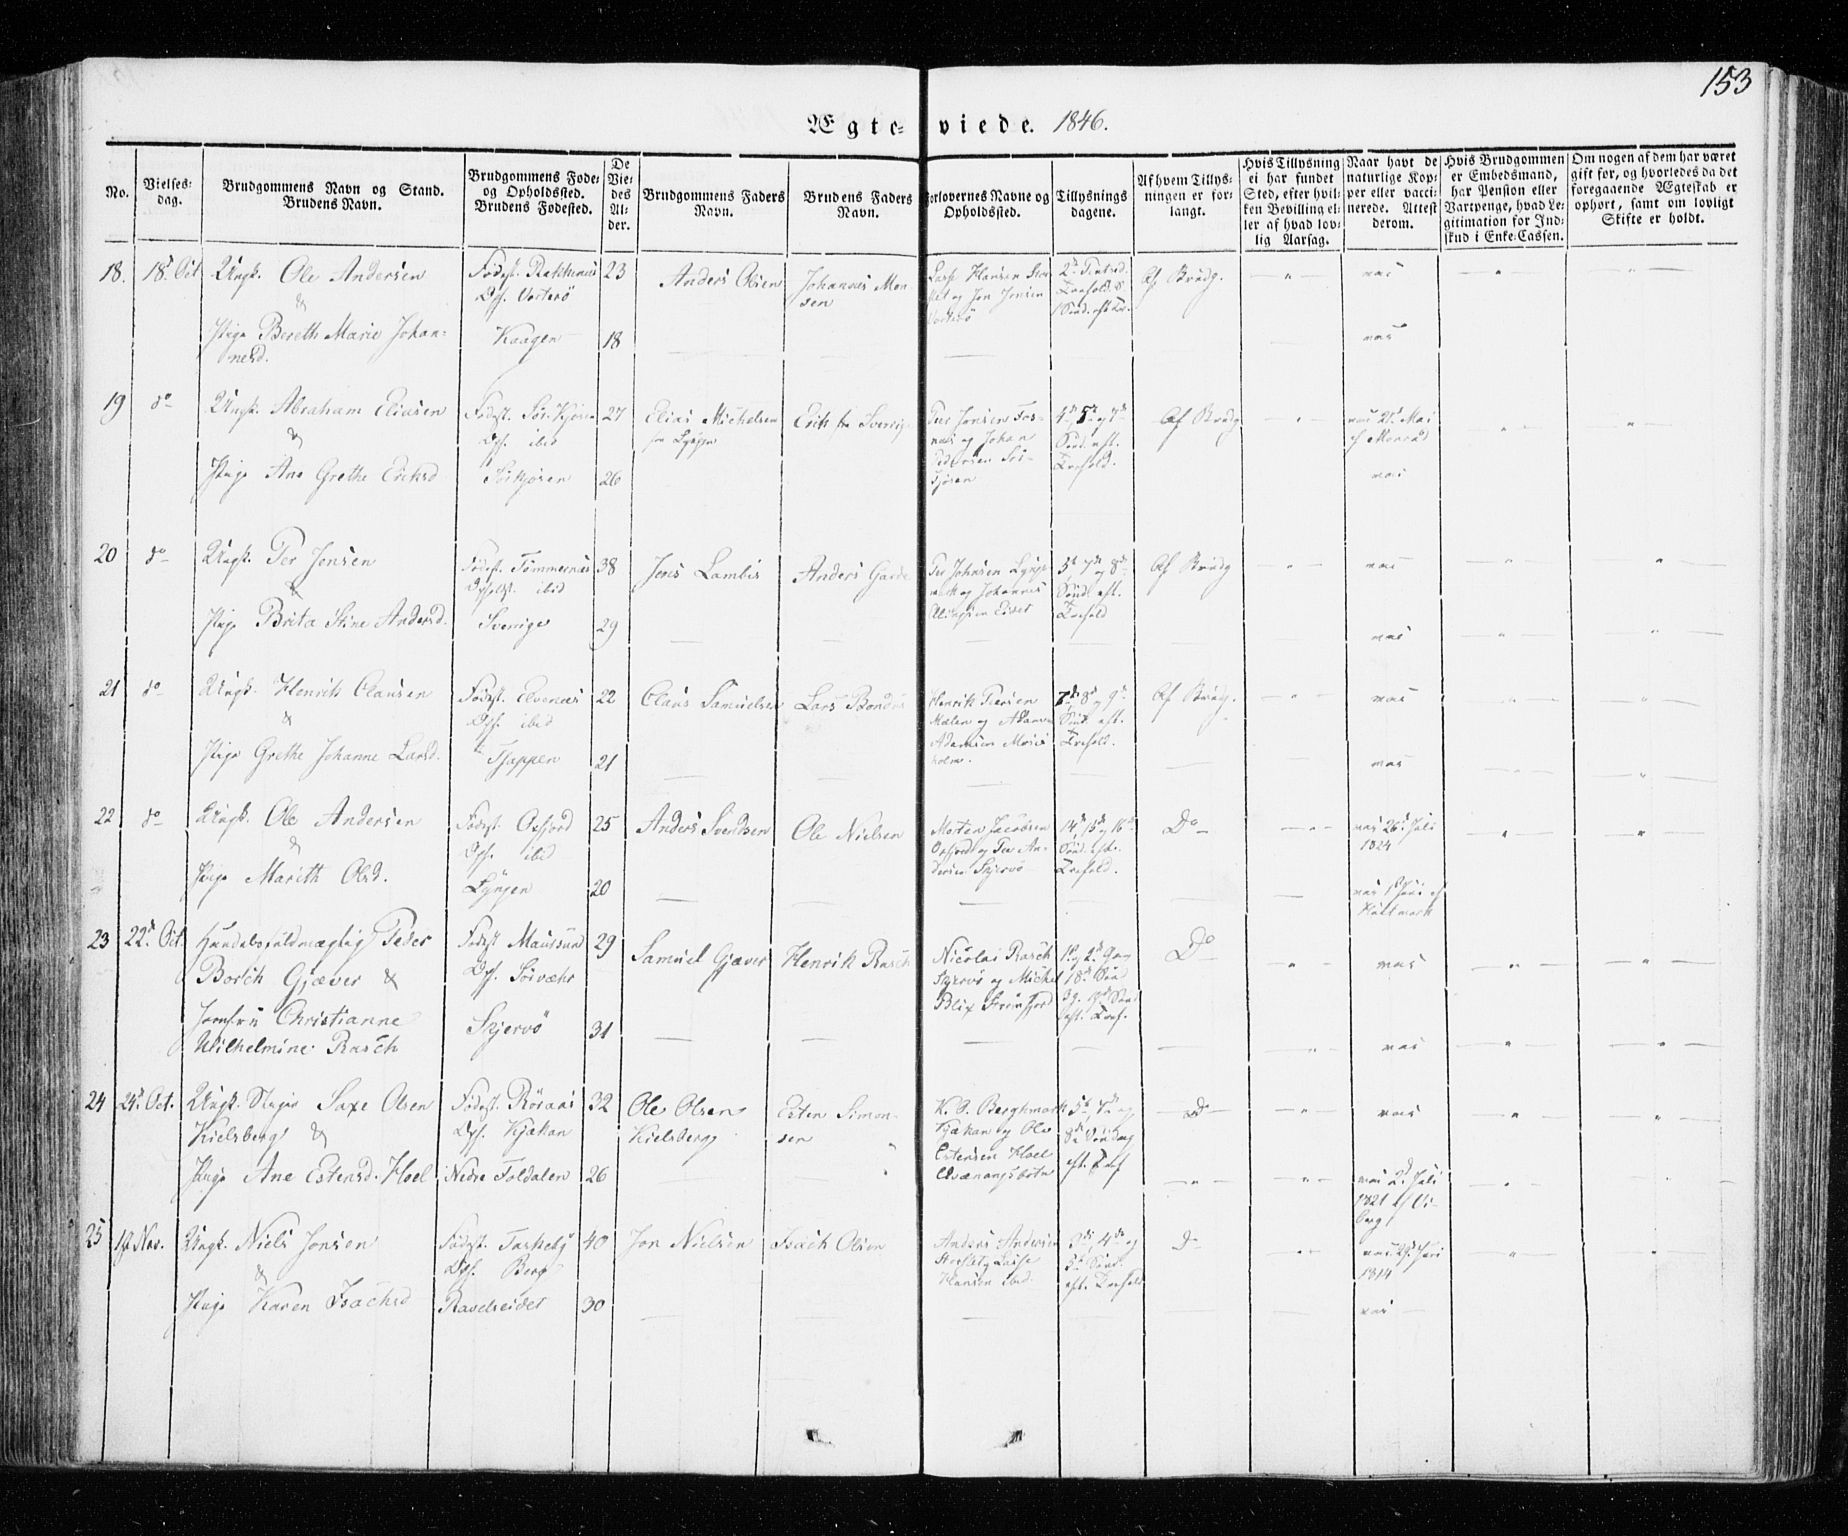 153
Ægte-viede. 1846.
No.
Vielses-
dag.
Brudgommens Navn og Stand.
Brudens Navn.
Brudgommens Føde-
og Opholdssted.
Brudens Fødested.
De
Vie-
des
Al-
der.
Brudgommens Faders
Navn.
Brudens Faders
Navn.
Forlovernes Navne og
Opholdssted.
Tillysnings
dagene.
Af hvem Tillys-
ningen er for-
langt.
Hvis Tillysning
ei har fundet
Sted, efter hvil-
ken Bevilling el-
ler af hvad lov-
lig Aarsag.
Naar havt de
naturlige Kop-
per eller vacci-
nerede. Attest
derom.
Hvis Brudgommen
er Embedsmand,
har Pension eller
Vartpenge, hvad Le-
gitimation for Ind-
skud i Enke-Cassen.
Om nogen af dem har været
gift før, og hvorledes da det
foregaaende Ægteskab er
ophørt, samt om lovligt
Skifte er holdt.
18. 18d Oct Ungk. Ole Andersen
&
Pige Bereth Marie Johan-
nesd.
Fødest.
Ops. Vorterø
Kaagen
23
18
Anders Olsen
Johannes Mon-
sen
Lasse Hansen
og Jon Jonsen
Vorterø
Af Brudg.
vac
vac
19 do Ungk. Abraham Eliasen
&
Pige Ane Grethe Eriksd
Fødest.
Ops. ibid
Sørkjosen
27
26
Elias Michelsen
fra Lyngen
Erik fra Sverrig
Per Jonsen
og Johan
Pedersen Sør-
kjosen
4de 5te og 7de
Sønd. eft.
Trefold.
Af Brudg
vac 21d Mai
af Monrad
vac
20 do Ungk. Per Jensen
&
Pige Brita Stine Andersd.
Fødest. Tømmernes
Opholdst. ibid
Sverige
38
29
Jens Lambis
Anders
Per Johnsen
og Johannes
5te 7de og 8de
Sønd. eft.
Trefold
Af Brudg
vac
vac
21 do Ungk. Henrik Clausen
&
Pige Grethe Johanne Larsd.
Fødest. Elvenæs
Ops. ibid
Tjappen
22
21
Claus Samuelsen
Lars
Henrik Persen
og
Adamsen
7de 8de og 9de
Sønd. eft.
Trefold.
Af Brudg.
vac
vac
22 do Ungk. Ole Andersen
&
Pige Marith Olsd.
Fødest. Oxfjord
Ops. ibid
Lyngen
25
20
Anders Svendsen
Ole Nielsen
Morten Jacobsen
Oxfjord og Per An-
dersen Skjervø
14de 15de og 16de
Sønd. eft.
Trefold.
Do
vac 26d Juli
1824
vac
23 22d Oct. Handelsfuldmægtig Peder
Borch Gjæver &
Jomfru Christianne
Wilhelmine Rasch
Fødest Maursund
Ops. Sørvæhr
Skjervø
29
31
Samuel Gjæver
Henrik Rasch
Nicolai Rasch
Skjervø og Michel
Blix Strømfjord
1ste og 2d Gang
18de Sønd
eft. Tref.
Do
vac
vac
24 24d Oct. Ungk. Saxe Olsen
Kielsberg &
Pige Ane Estensd. Hoel
Fødest. Røraas
Ops. Kjækan
Nedre Foldalen
32
26
Ole Olsen
Kielsberg
Esten Simon-
sen
K. O. Berghmark
Kjækan og Ole
Estensen Hoel
Qvænangsbotn
5te 7de og
8de Søndag
eft. Tref
Do
vac
vac 2d Juli
1821
25 1ste Nov. Ungk. Niels Jonsen
&
Pige Karen Isachsd
Fødest. Taskeby
Ops. Berg
Ravelseidet
40
30
Jon Nielsen
Isach Olsen
Anders Andersen
og Lasse
Hansen ibid.
3de, 4de og
5te Sønd.
eft. Trefold
Do
1814
vac